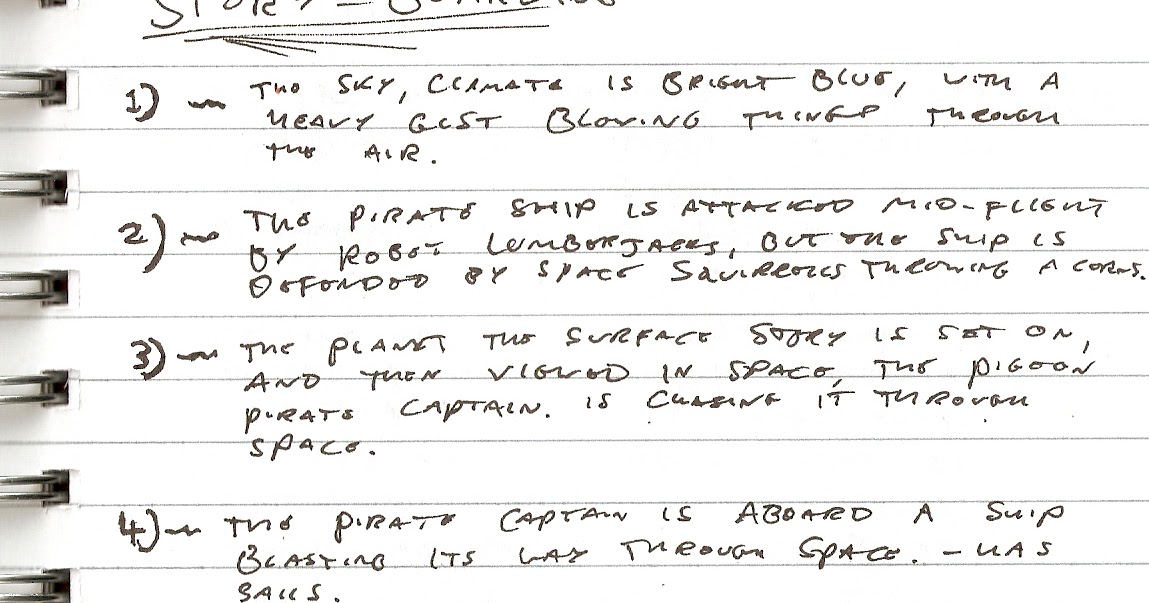 STORY - BOARDING
1) ~ THE SKY, CLIMATE IS BRIGHT BLUE, WITH A
HEAVY GUST BLOWING THINGS THROUGH
THE AIR.
2) ~ THE PIRATE SHIP IS ATTACKED MID-FLIGHT
BY ROBOT LUMBERJACKS, BUT THE SHIP IS
DEFENDED BY SPACE SQUIRRELS THROWING ACORNS.
3) ~ THE PLANET THE SURFACE STORY IS SET ON,
AND THEN VIEWED IN SPACE, THE PIGEON
PIRATE CAPTAIN. IS CHASING IT THROUGH
SPACE.
4) ~ THE PIRATE CAPTAIN IS ABOARD A SHIP
BLASTING ITS WAY THROUGH SPACE. - HAS
SAILS.